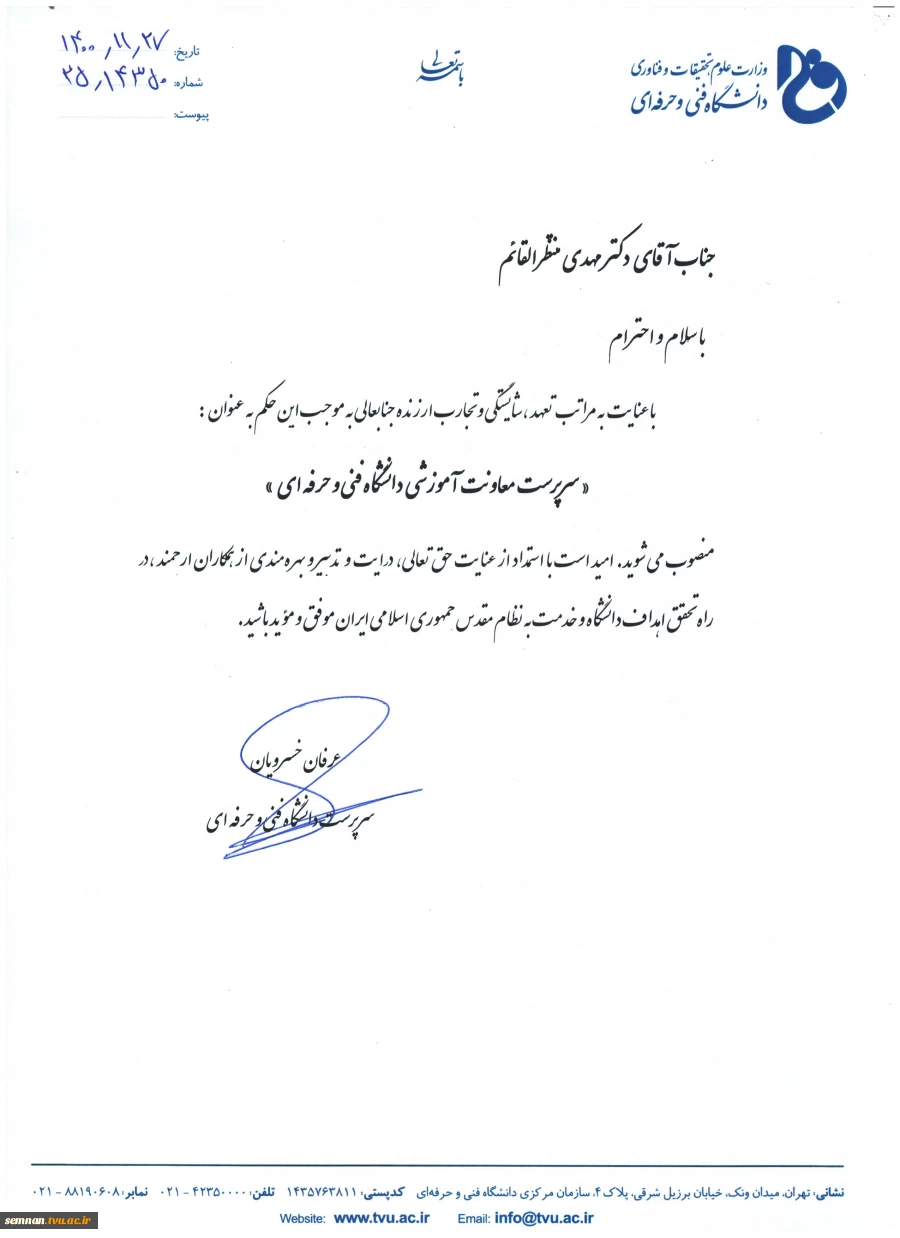 وزارت علوم تحقیقات و فناوری
دانشگاه فنی و حرفه‌ای
باسمه تعالی
تاریخ: ۱۴۰۰/۱۱/۲۷
شماره: ۲۵/۱۴۳۵۰
پیوست:
جناب آقای دکتر مهدی منتظرالقائم
با سلام و احترام
با عنایت به مراتب تعهد، شایستگی و تجارب ارزنده جنابعالی به موجب این حکم به عنوان :
« سرپرست معاونت آموزشی دانشگاه فنی و حرفه ای »
منصوب می شوید. امید است با استمداد از عنایت حق تعالی، درایت و تدبیر و بهره مندی از همکاران ارجمند، در
راه تحقق اهداف دانشگاه و خدمت به نظام مقدس جمهوری اسلامی ایران موفق و مؤید باشید.
عرفان خسرویان
سرپرست دانشگاه فنی و حرفه ای
نشانی: تهران، میدان ونک، خیابان برزیل شرقی، پلاک ۴، سازمان مرکزی دانشگاه فنی و حرفه‌ای کدپستی: ۱۴۳۵۷۶۳۸۱۱ تلفن: ۴۲۳۵۰۰۰۰ - ۰۲۱ نمابر: ۸۸۱۹۰۶۰۸ - ۰۲۱
Website: www.tvu.ac.ir Email: info@tvu.ac.ir
semnan.tvu.ac.ir